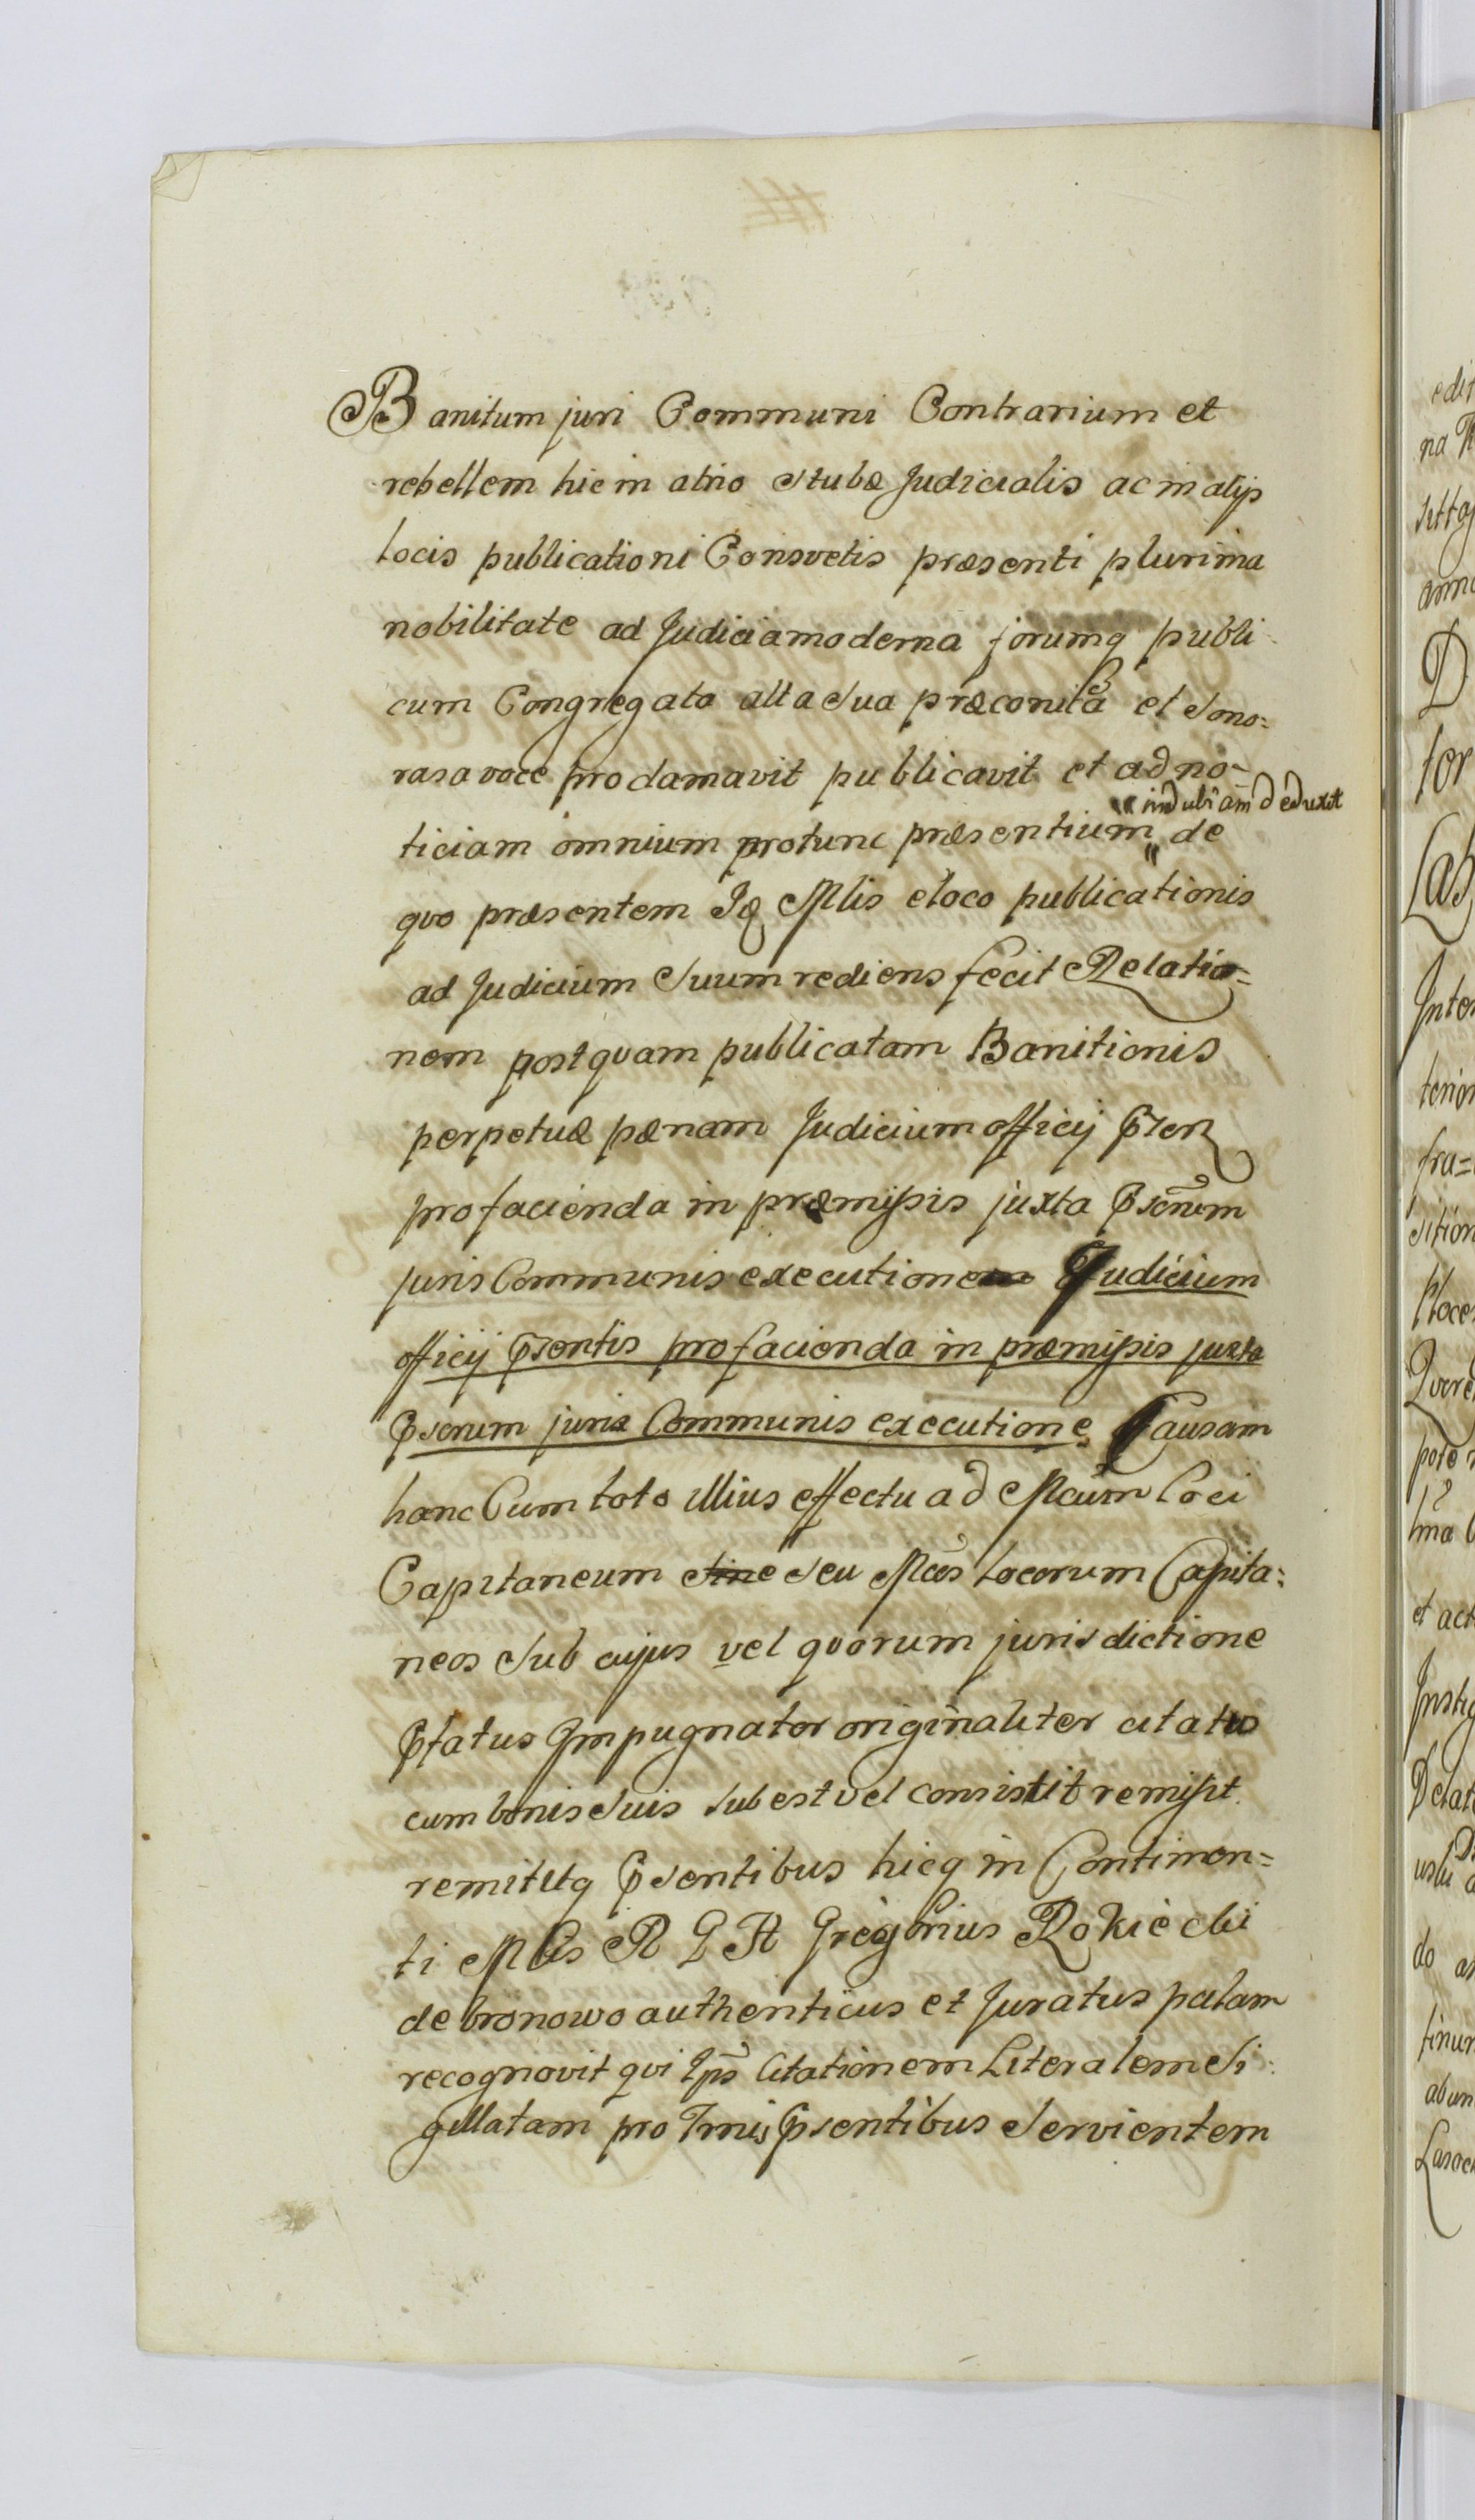 Banitum juri Communi Contrarium et
rebellem hic in atrio Stubæ Judicialis ac in alijs
locis publicationi Consvetis præsenti plurima
nobilitate ad Judicia moderna forumq publi
cum Congregata alta sua præconica et Sono=
rasa voce proclamavit publicavit et ad no=
indubiam deduxit
ticiam omnium protunc præsentium de
quo præsentem Iq Mlis eloco publicationis
ad Judicium Suum rediens fecit Relatio=
nem postquam publicatam Banitionis
perpetuæ pænam Judicium officij Pren
pro facienda in præmissis juxta Pscrum
juris Communis executione Judicium
officij Psentis pro facienda in præmissis juxta
Pscrum juris Communis executione Causam
hanc Cum toto illius effectu ad Mcum Loci
Capitaneum sine seu Mcos Locorum Capita=
neos Sub cujus vel quorum jurisdictione
Pfatus Impugnator originaliter citatus
cum bonis Suis Subest vel consistit remisit
remititq Psentibus hicq in Continen=
ti Mlis R G A Gregorius Rokicchi
de bronowo authenticus et Juratus palam
recognovit qui Ips Citationem Literalem Si=
gillatam pro Tmis Psentibus Servientem
edit
na
anno
D
for
Las
Inter
terior
fra=
sition
Ploce
pote
et act
Instig
Delat
do
tinur
abun